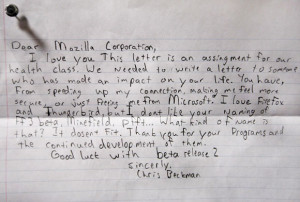 Dear Mozilla Corporation,
I love you This letter is an assingment for our
health class. We needed to write a letter to someone
who has made an impact on your life. You have,
From speeding up my connection, making me feel more
secure, or just freeing me from Microsoft. I love Firefox
and thunderbird, but I dont like your naming of
FF3 beta, Minefield, pfft... What kind of name is
that? It dosent Fit. Thank you for your Programs and
the continued development of them.
Good luck with beta release 2
sincerly,
Chris Beckman